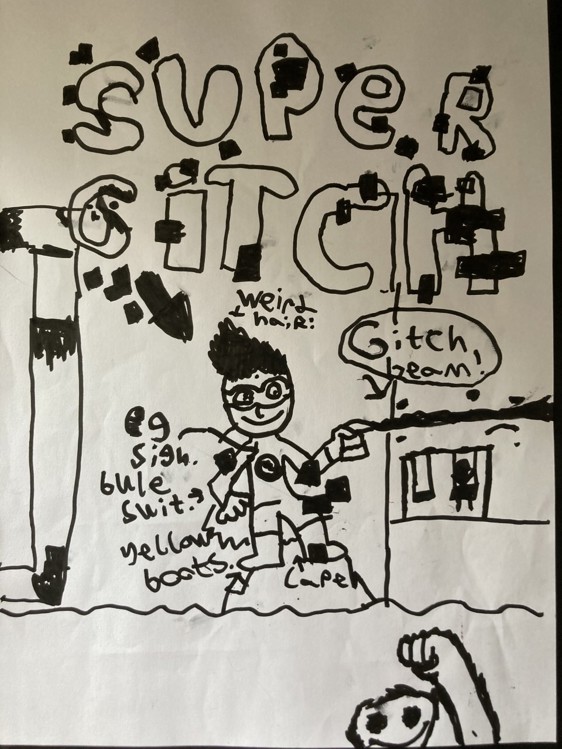 SUPER
GiTCH
weird
hair:
Gitch
beam!
eg
sign.
bule
suit.
yellow
boots.
Cape